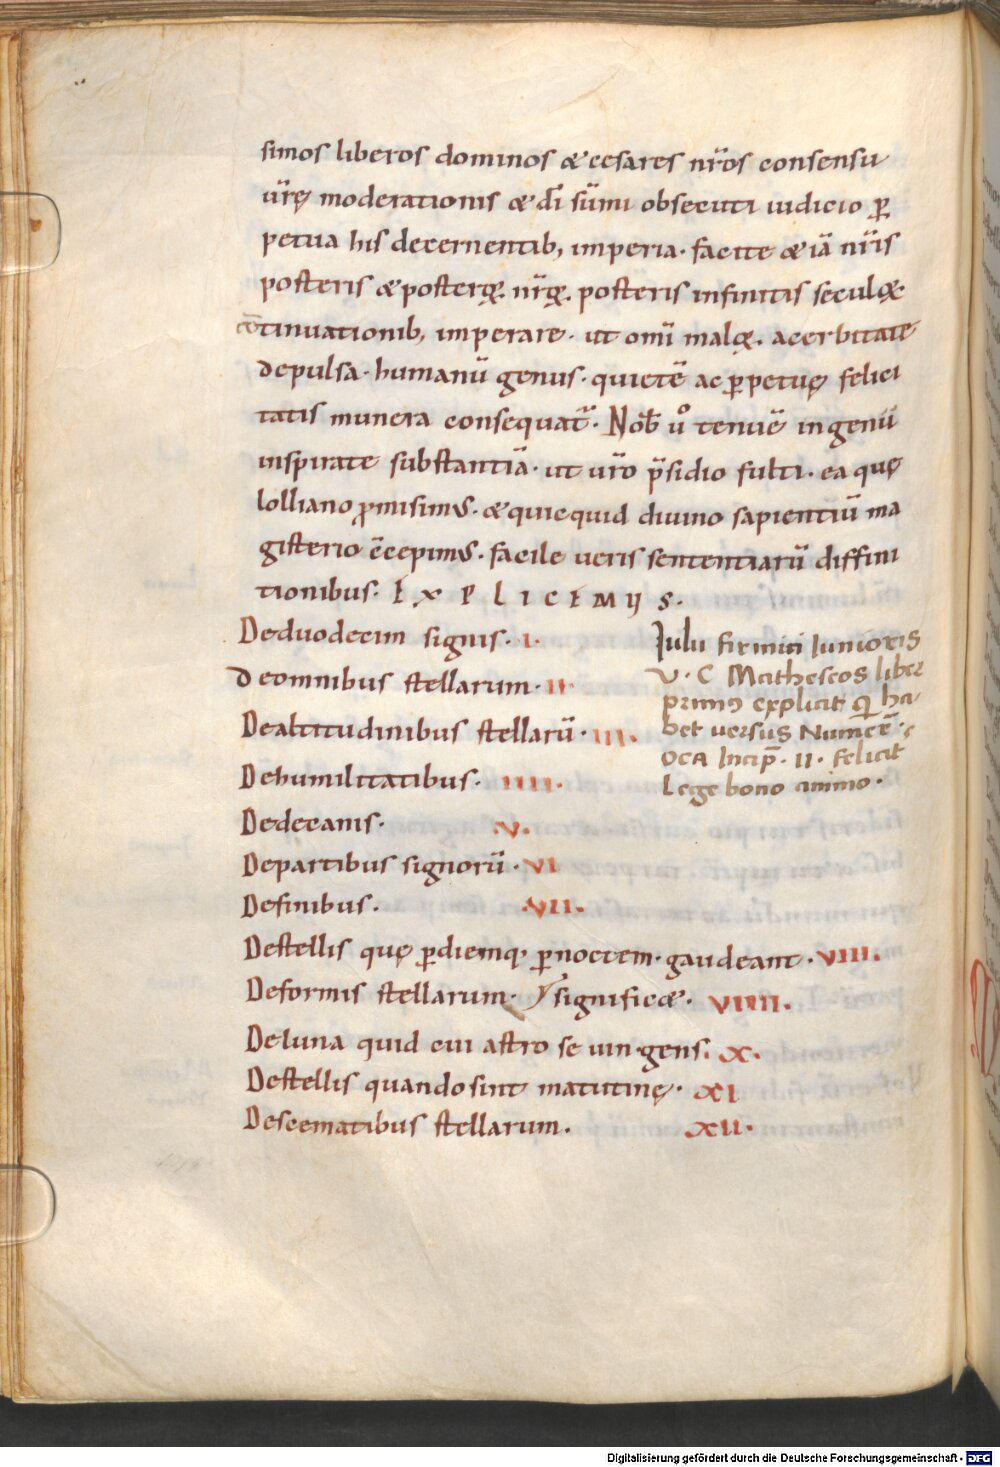 simos liberos dominos &cesares nr̄os consensu
ur̄ę moderationis & dī sūmi obsecuti iudicio ꝑ
petua his decernentib; imperia· facite & iā nr̄is
posteris &posterǫꝝ nr̄ǫꝝ. posteris infinitis seculꝝ
cōtinuationib; imperare· ut omī malǫꝝ acerbitate
depulsa· humanū genus· quietē ac ꝑpetuę felici
tatis munera consequat̄· Nob̄ uͦ tenuē ingenii
inspirate substantiā· ut ur̄o p̄sidio fulti· ea quę
lolliano ꝓmisimus· & quicquid diuino sapientiū ma
gisterio c̄cepimus· facile ueris sententiarū diffini
tionibus· EXPLICIMIIS·
Deduodecim signis· I·
Deomnibus stellarum· II·
Dealtitudinibus stellarū· III·
Dehumilitatibus· IIII·
Dedecanis· ·V·
Departibus signorū· VI
Definibus· ·VII·
Destellis quę ꝑdiemq; ꝑnoctem· gaudeant· VIII·
Deformis stellarum· significæ· VIIII·
Deluna quid cui astro se uin·gens· X·
Destellis quando sint matutinę· XI
Descematibus stellarum· XII·
Julii firmici Iunioris
V·C Matheseos liber
primus explicit q̄ ha
bet uersus Numerē·
OCA Incip̄· II· felicit̄
Lege bono animo·
Digitalisierung gefördert durch die Deutsche Forschungsgemeinschaft - DFG